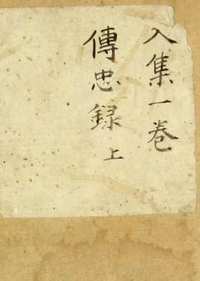 入集一卷
傳忠録 上